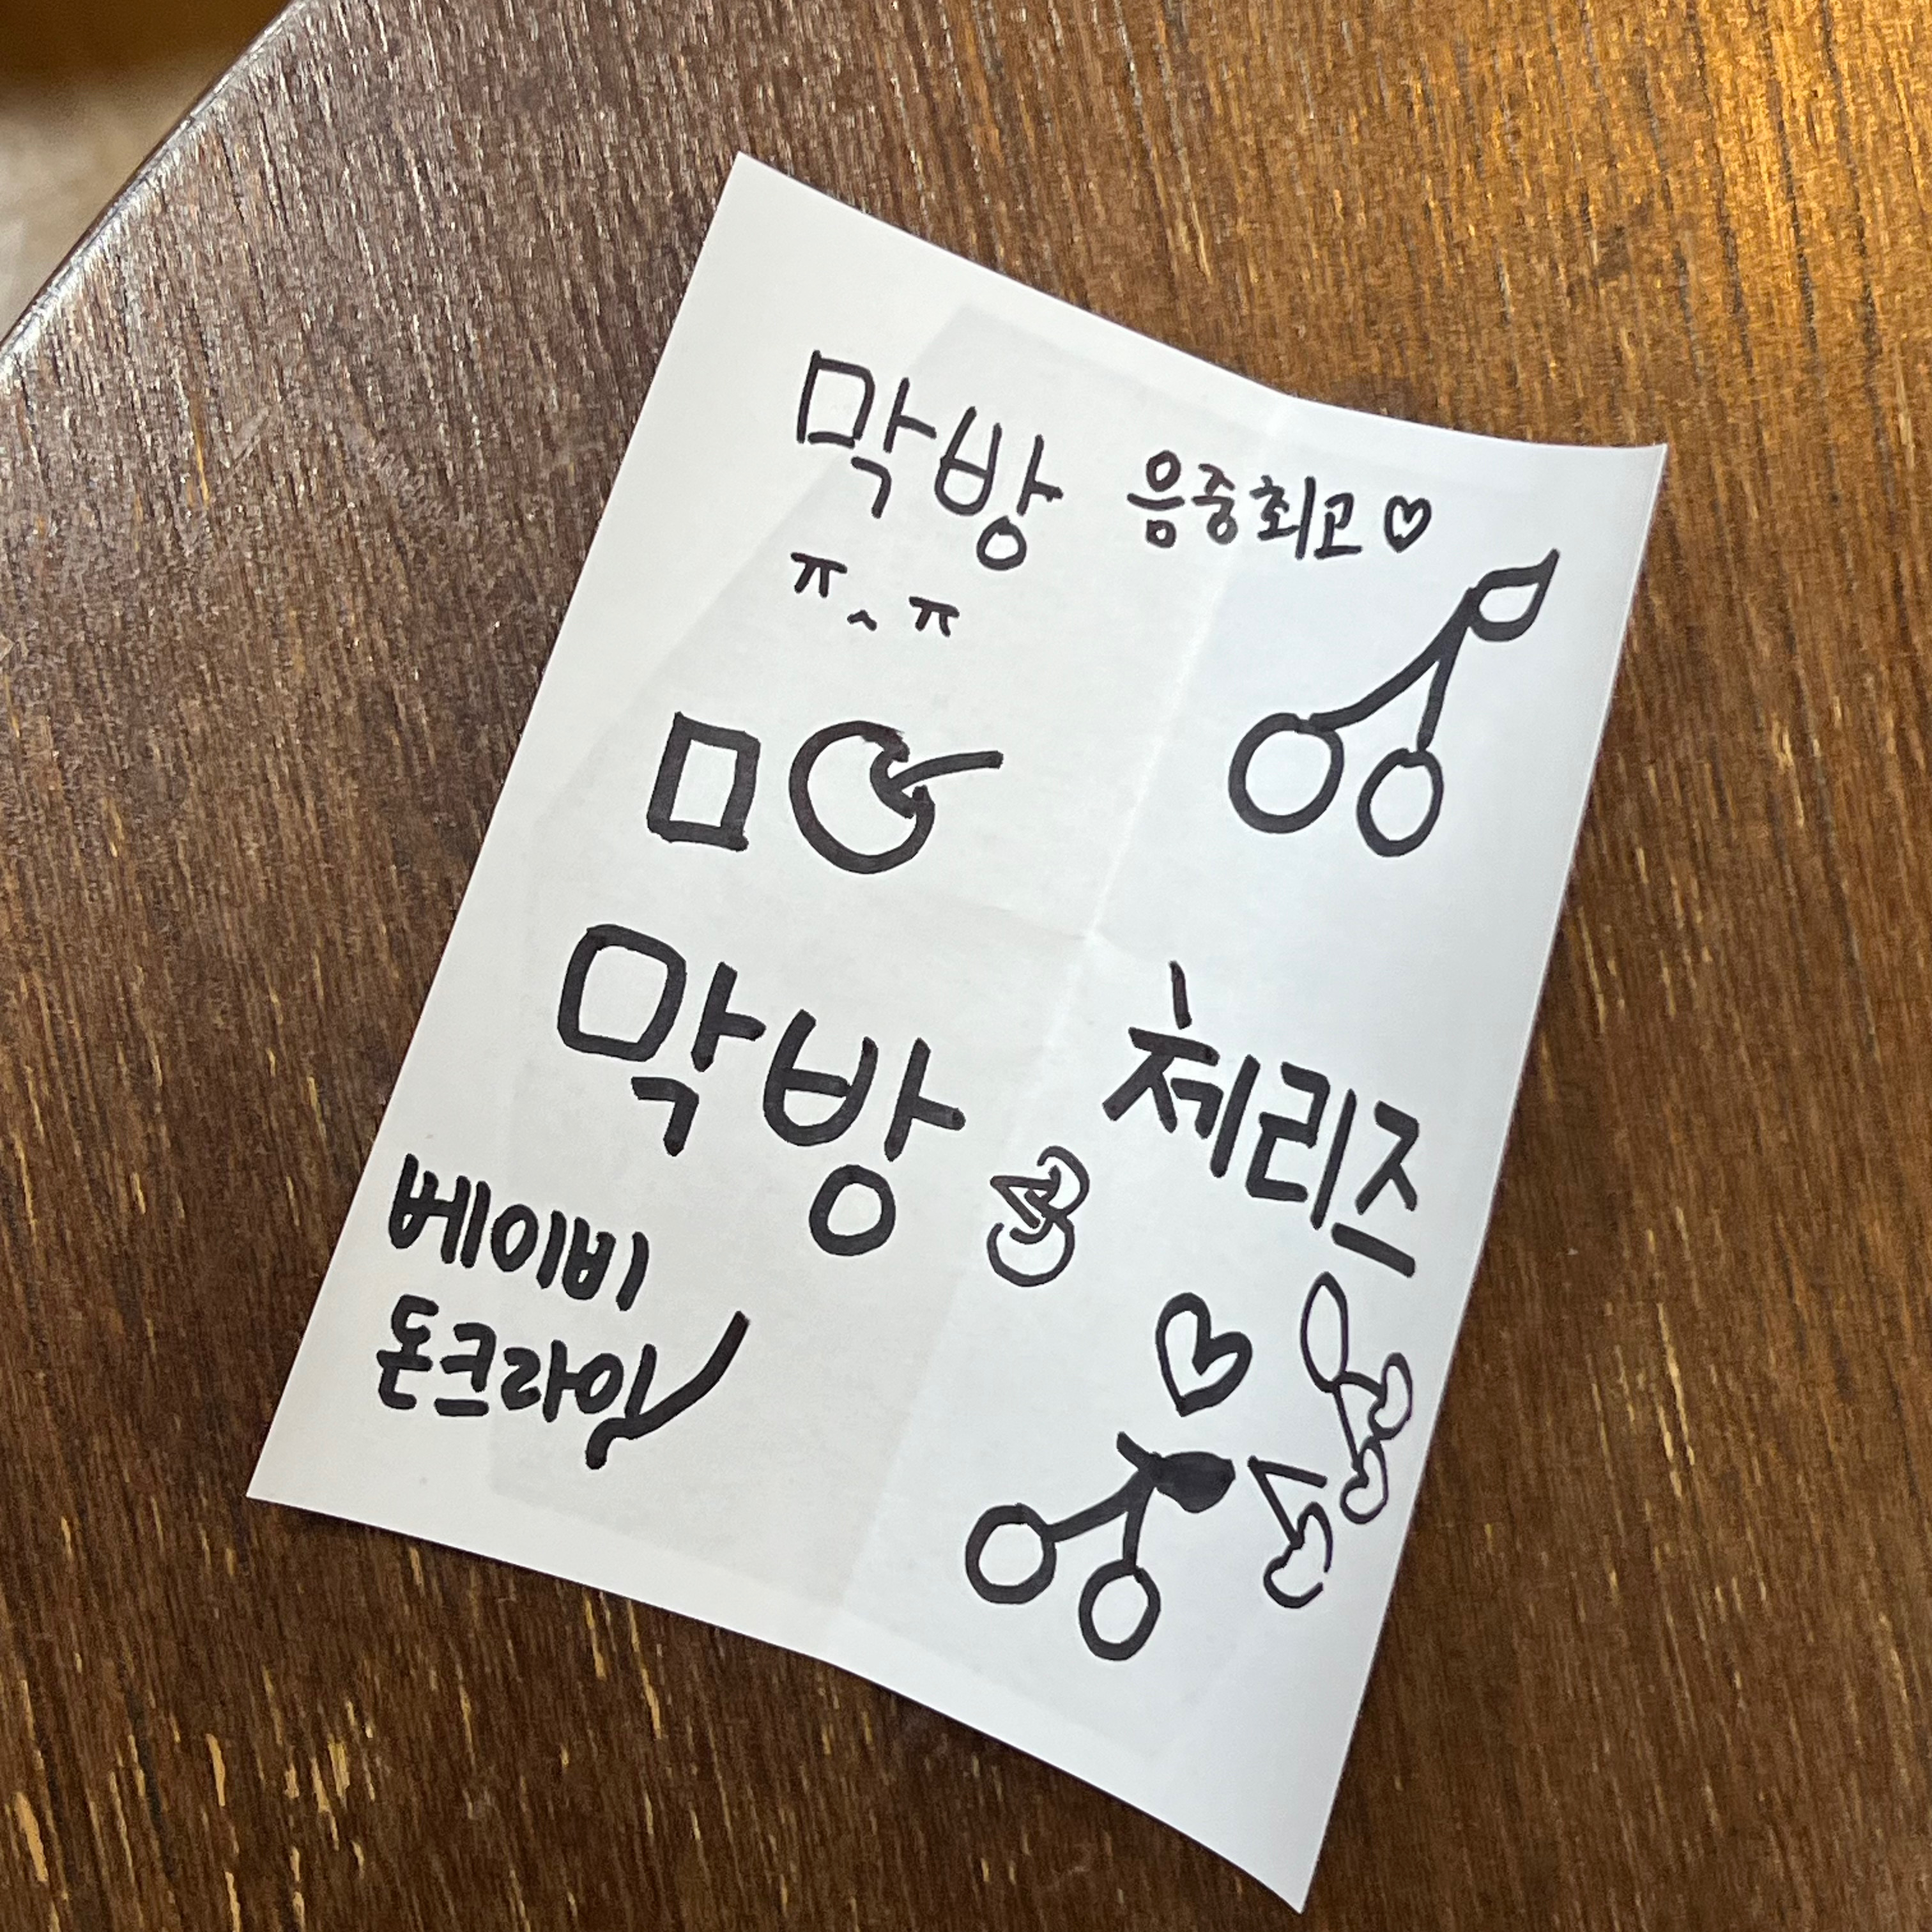 막방 음중최고♡
ㅠ^ㅠ
막방 체리즈
베이비
돈크라이